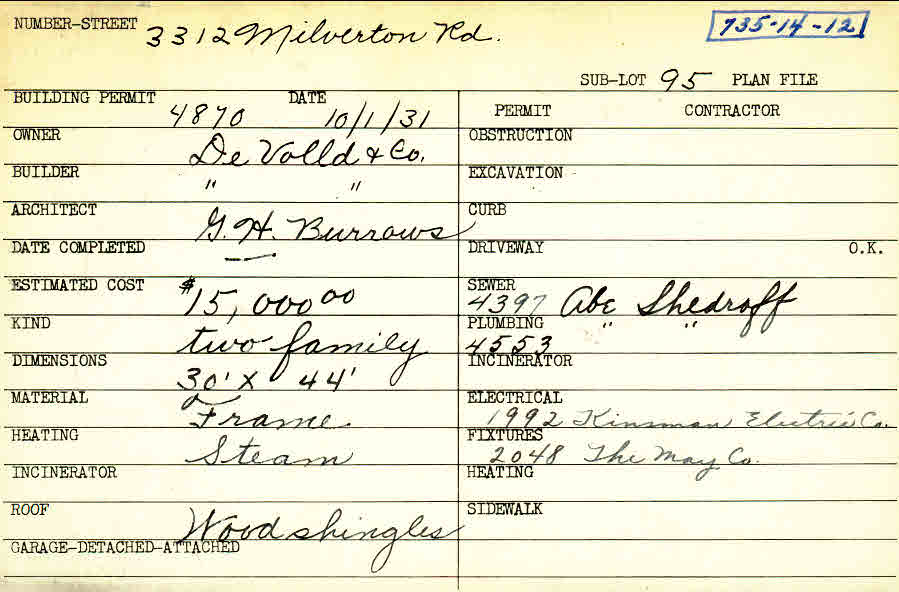 NUMBER-STREET 3312 Milverton Rd. 735-14-12
SUB-LOT 95 PLAN FILE
BUILDING PERMIT 4870 DATE 10/1/31
PERMIT CONTRACTOR
OWNER De Volld & Co.
OBSTRUCTION
BUILDER " "
EXCAVATION
ARCHITECT G. H. Burrows
CURB
DATE COMPLETED —
DRIVEWAY O.K.
ESTIMATED COST $15,000 00
SEWER 4397 Abe Shedroff
KIND two family
PLUMBING 4553 " "
DIMENSIONS 30' X 44'
INCINERATOR
MATERIAL Frame
ELECTRICAL 1992 Kinsman Electric Co.
HEATING Steam
FIXTURES 2048 The May Co.
INCINERATOR
HEATING
ROOF Wood shingles
SIDEWALK
GARAGE-DETACHED-ATTACHED